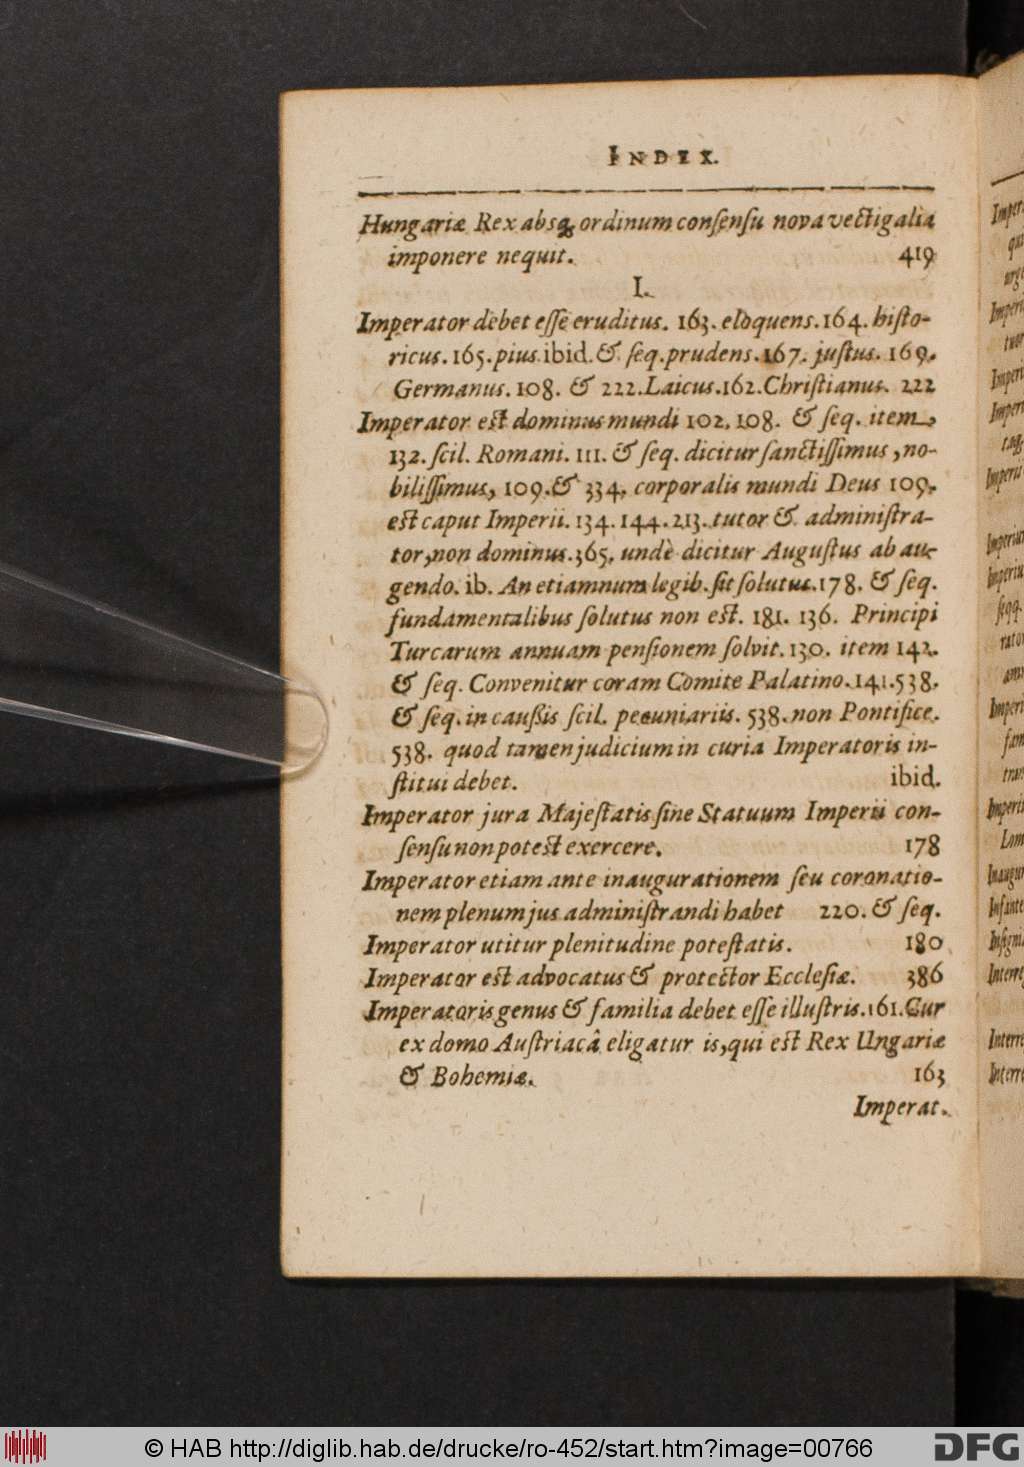 INDEX.
Hungariæ Rex absq; ordinum consensu nova vectigalia
imponere nequit. 419
I.
Imperator debet esse eruditus. 163. eloquens. 164. histo-
ricus. 165. pius. ibid. & seq. prudens. 167. justus. 169.
Germanus. 108. & 222. Laicus. 162. Christianus. 222
Imperator est dominus mundi 102. 108. & seq. item,
132. scil. Romani. 111. & seq. dicitur sanctissimus, no-
bilissimus, 109. & 334. corporalis mundi Deus 109.
est caput Imperii. 134. 144. 213. tutor & administra-
tor, non dominus. 365. undè dicitur Augustus ab au-
gendo. ib. An etiamnum legib. sit solutus. 178. & seq.
fundamentalibus solutus non est. 181. 136. Principi
Turcarum annuam pensionem solvit. 130. item 142.
& seq. Convenitur coram Comite Palatino. 141. 538.
& seq. in caussis scil. pecuniariis. 538. non Pontifice.
538. quod tamen judicium in curia Imperatoris in-
stitui debet. ibid.
Imperator jura Majestatis sine Statuum Imperii con-
sensu non potest exercere. 178
Imperator etiam ante inaugurationem seu coronatio-
nem plenum jus administrandi habet 220. & seq.
Imperator utitur plenitudine potestatis. 180
Imperator est advocatus & protector Ecclesiæ. 386
Imperatoris genus & familia debet esse illustris. 161. Cur
ex domo Austriacâ eligatur is, qui est Rex Ungariæ
& Bohemiæ. 163
Imperat.
© HAB http://diglib.hab.de/drucke/ro-452/start.htm?image=00766
DFG